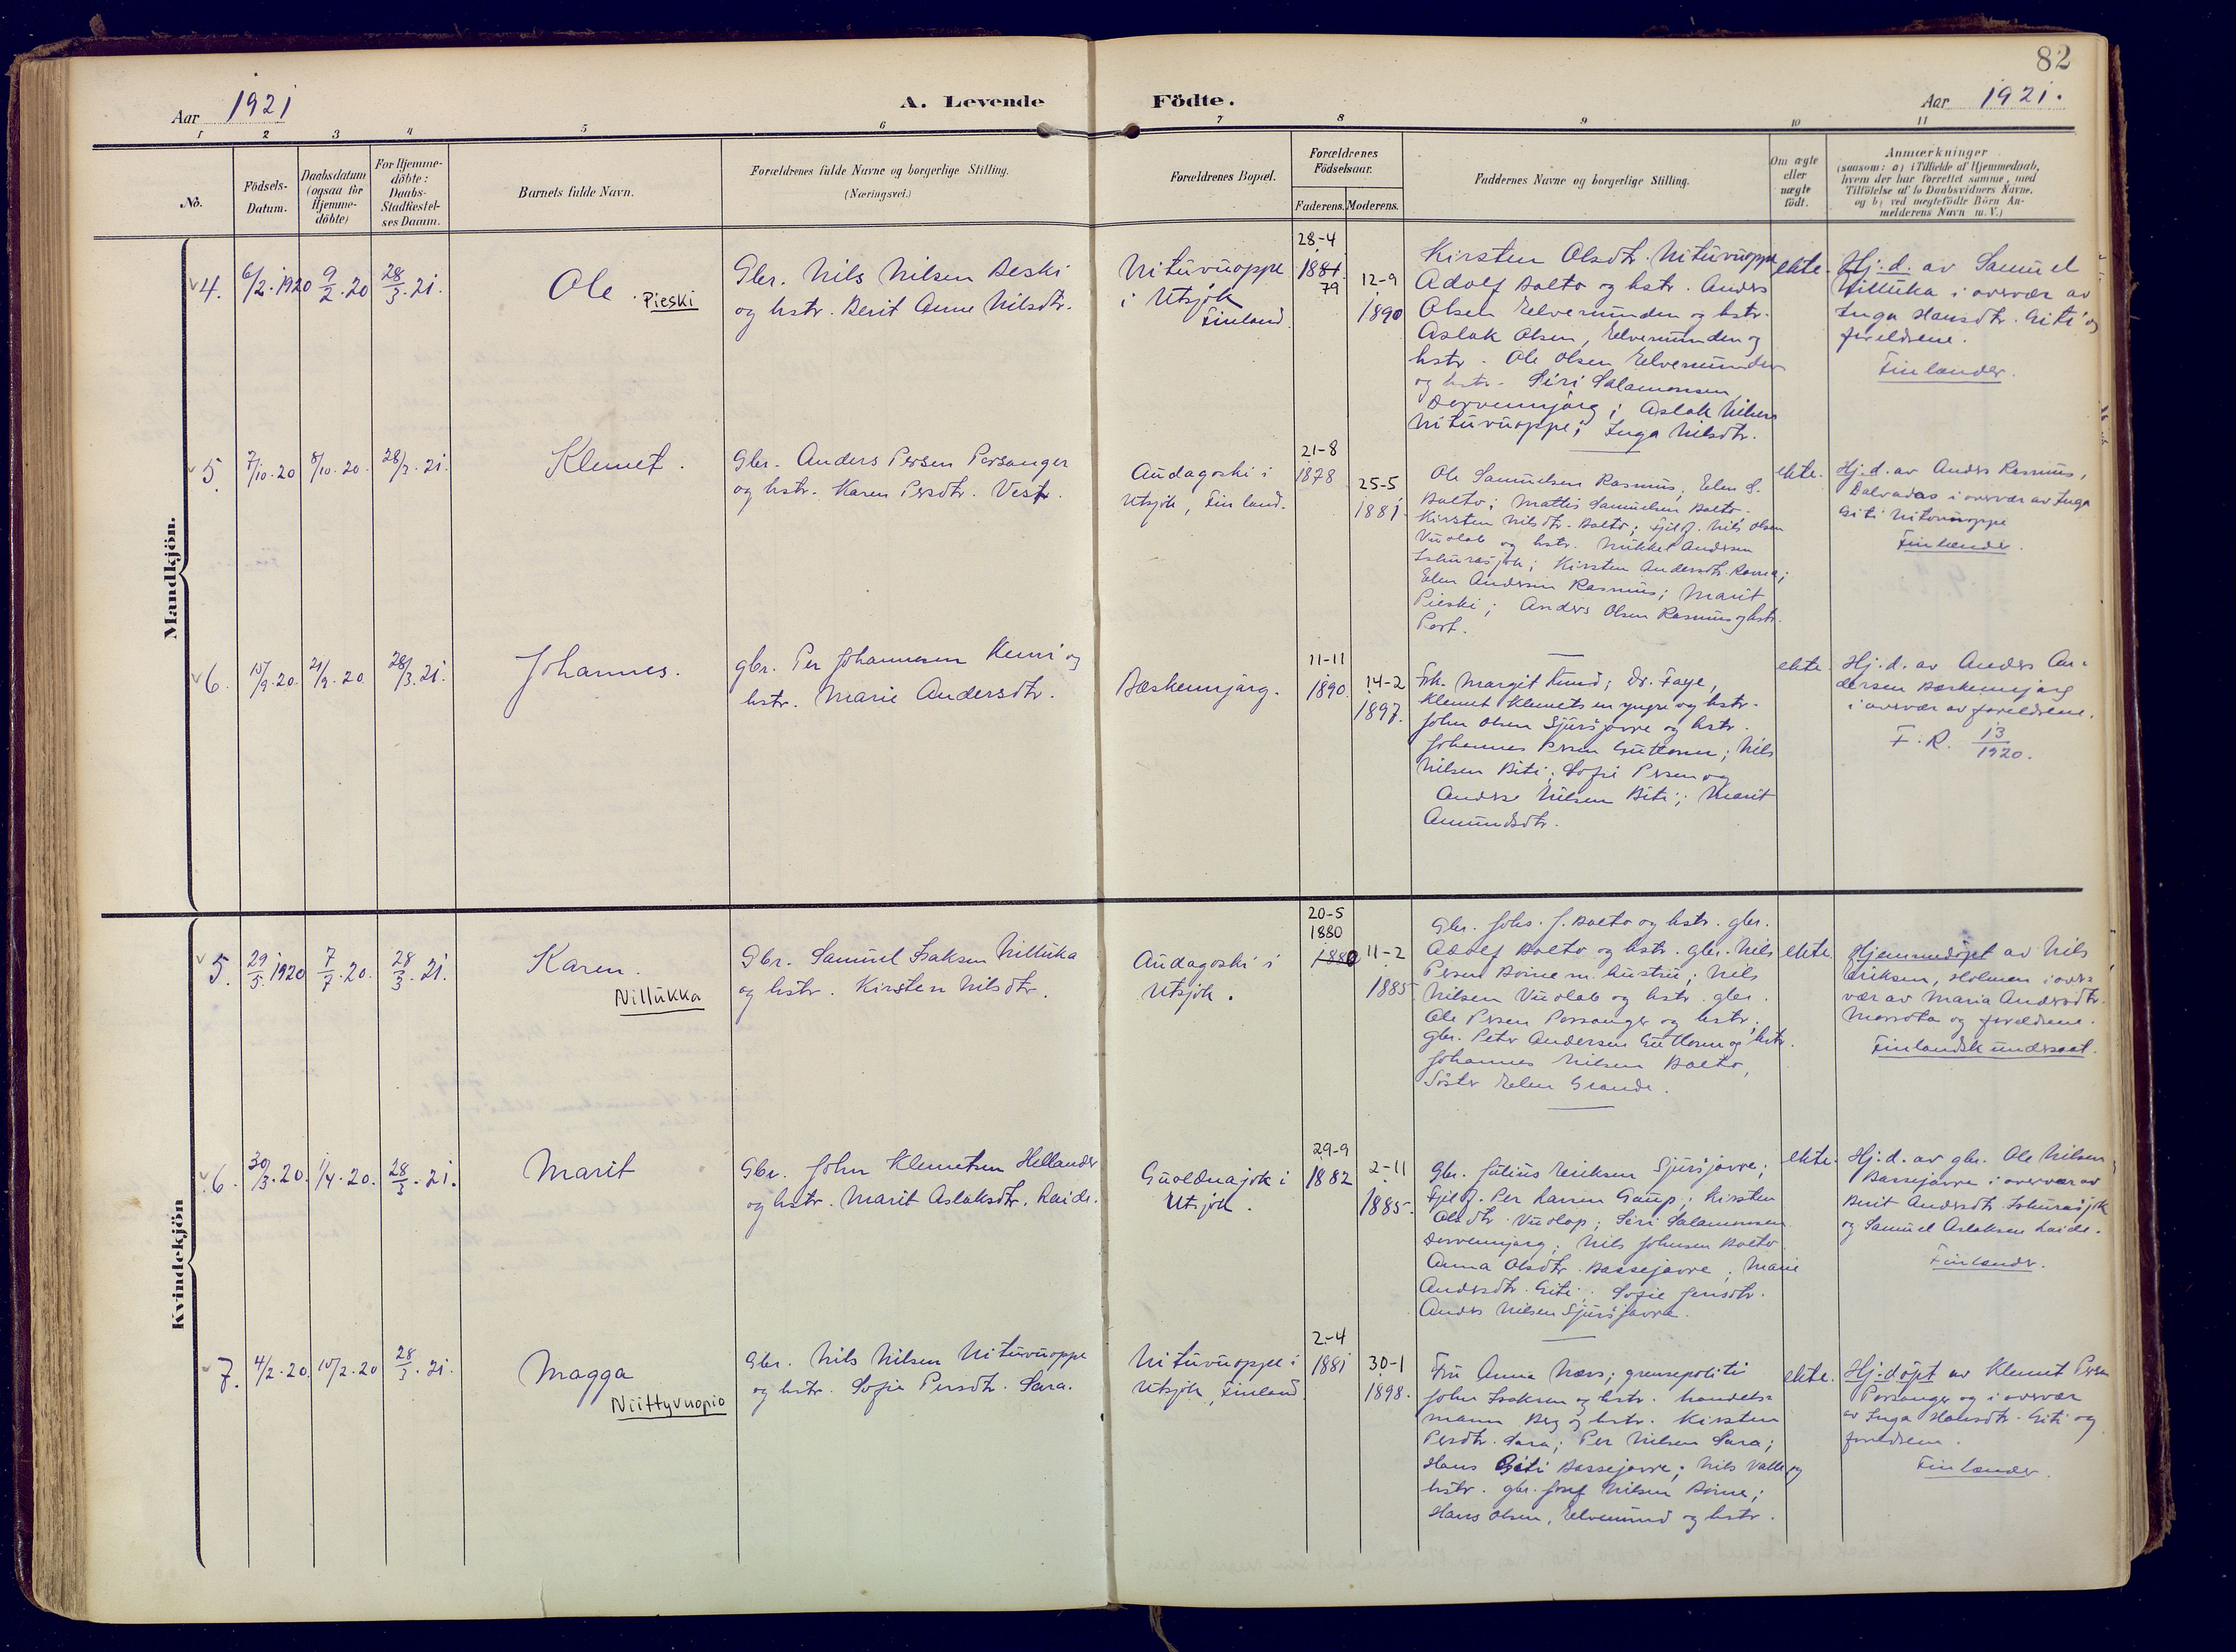 82
Aar 1921
A. Levende
Födte.
Aar 1921.
1 2 3 4 5 6 7 8 9 10 11
No.
Födsels-
Datum.
Daabsdatum
(ogsaa for
Hjemme-
döbte)
For Hjemme-
döbte:
Daabs-
Stadfæstel-
ses Datum.
Barnets fulde Navn.
Forældrenes fulde Navne og borgerlige Stilling.
(Næringsvei.)
Forældrenes Bopæl.
Forældrenes
Födselsaar.
Faderens. Moderens.
Faddernes Navne og borgerlige Stilling.
Om ægte
eller
uægte
födt.
Anmærkninger
(saasom: a) i Tilfælde af Hjemmedaab,
hvem der har forrettet samme, med
Tilföielse af to Daabsvidners Navne,
og b) ved uægtefödte Börn An-
melderens Navn m. V.)
Mandkjön.
4. 6/2. 1920 9/2. 20 28/3. 21.
Ole.
Pieski
Gbr. Nils Nilsen Beski
og hstr. Berit Anne Nilsdtr.
Nituvuoppe
i Utsjok
Finland.
28-4
1881.
79
12-9
1890
Kirsten Olsdtr. Nituvuoppe
Adolf Balto og hstr. Anders
Olsen Elvemunden og hstr.
Aslak Olsen, Elvemunden og
hstr. Ole Olsen Elvemunden
og hstr. Siri Salamonsen
Dervennjarg; Aslak Nilsen
Nituvuoppe; Inga Nilsdtr.
ekte.
Hj. d. av Samuel
Nilluka i overvær av
Inga Hansdtr. Giti og
foreldrene.
Finlænder.
5. 7/10. 20 8/10. 20. 28/3. 21.
Klemet.
Gbr. Anders Persen Porsanger
og hstr. Karen Persdtr. Vest.
Audagoski i
Utsjok, Finland.
21-8
1878
25-5
1881
Ole Samuelsen Rasmus; Elen S.
Balto; Mattis Samuelsen Balto.
Kirsten Nilsdtr. Balto; Fjelf. Nils Olsen
Vuolab og hstr. Mikkel Andersen
Ishurasjok; Kirsten Andersdtr.
Elen Andersen Rasmus; Marit
Pieski; Anders Olsen Rasmus og hstr.
Port.
ekte.
Hj. d. av Anders Rasmus,
Dalvadas i overvær av Inga
Giti Nituvuoppe
Finlænder.
6. 15/9. 20. 21/9. 20. 28/3. 21.
Johannes.
gbr. Per Johannesen Kemi og
hstr. Marie Andersdtr.
Bæskennjarg.
11-11
1890.
14-2
1897.
Frk. Margit Lund; Dr. Faye,
Klemet Klemetsen yngre og hstr.
John Olsen Sjursjavre og hstr.
Johannes Persen Guttorm; Nils
Nilsen Biti; Sofie Persen og
Anders Nilsen Biti; Marit
Amundsdtr.
ekte.
Hj. d. av Anders An-
dersen Bæskennjarg
i overvær av foreldrene.
F. R. 13/1920.
Kvindekjön
5. 29/5. 1920 7/7. 20. 28/3. 21.
Karen.
Nillukka
Gbr. Samuel Isaksen Nilluka
og hstr. Kirsten Nilsdtr.
Audagoski i
Utsjok.
20-5
1880
1880
11-2
1885
Gbr. Johs. J. Balto og hstr. gbr.
Adolf Balto og hstr. gbr. Nils
Persen Boine m. hustru; Nils
Nilsen Vuolab og hstr. gbr.
Ole Persen Porsanger og hstr.
gbr. Peter Andersen Guttorm og hstr.
Johannes Nilsen Balto,
Söster Elen Grande.
ekte.
Hjemmedöpt av Nils
Eriksen, Holmen i over-
vær av Maria Andersdtr.
Morrota og foreldrene.
Finlandsk undersaat.
6. 30/3. 20. 1/4. 20. 28/3. 21.
Marit
Gbr. John Klemetsen Hellander
og hstr. Marit Aslaksdtr. Laide.
Guoldnajok i
Utsjok.
29-9
1882
2-11
1885.
gbr. Julius Eriksen Sjursjavre;
Fjelf. Per Larsen Gaup; Kirsten
Olsdtr. Vuolap; Siri Salamonsen
Dervennjarg; Nils Johnsen Balto
Anna Olsdtr. Bassejavre; Marie
Andersdtr. Giti; Sofie Jensdtr.
Anders Nilsen Sjursjavre.
ekte.
Hj. d. av gbr. Ole Nilsen
Bassejavre i overvær av
Berit Andersdtr. Ishurasjok
og Samuel Aslaksen Laide.
Finlænder.
7. 4/2. 20. 10/2. 20 28/3. 21.
Magga
Niittyvuopio
Gbr. Nils Nilsen Nituvuoppe
og hstr. Sofie Persdtr. Sara.
Nituvuoppe i
Utsjok, Finland.
2-4
1881
30-1
1898.
Fru Anna Næss; grensepoliti
John Isaksen og hstr. handels-
mann Berg og hstr. Kirsten
Persdtr. Sara; Per Nilsen Sara;
Hans Giti Bassejavre; Nils Valle og
hstr. gbr. Josef Nilsen Boine;
Hans Olsen, Elvemund og hstr.
ekte.
Hj. döpt av Klemet Persen
Porsanger og i overvær
av Inga Hansdtr. Giti og
foreldrene.
Finlænder.